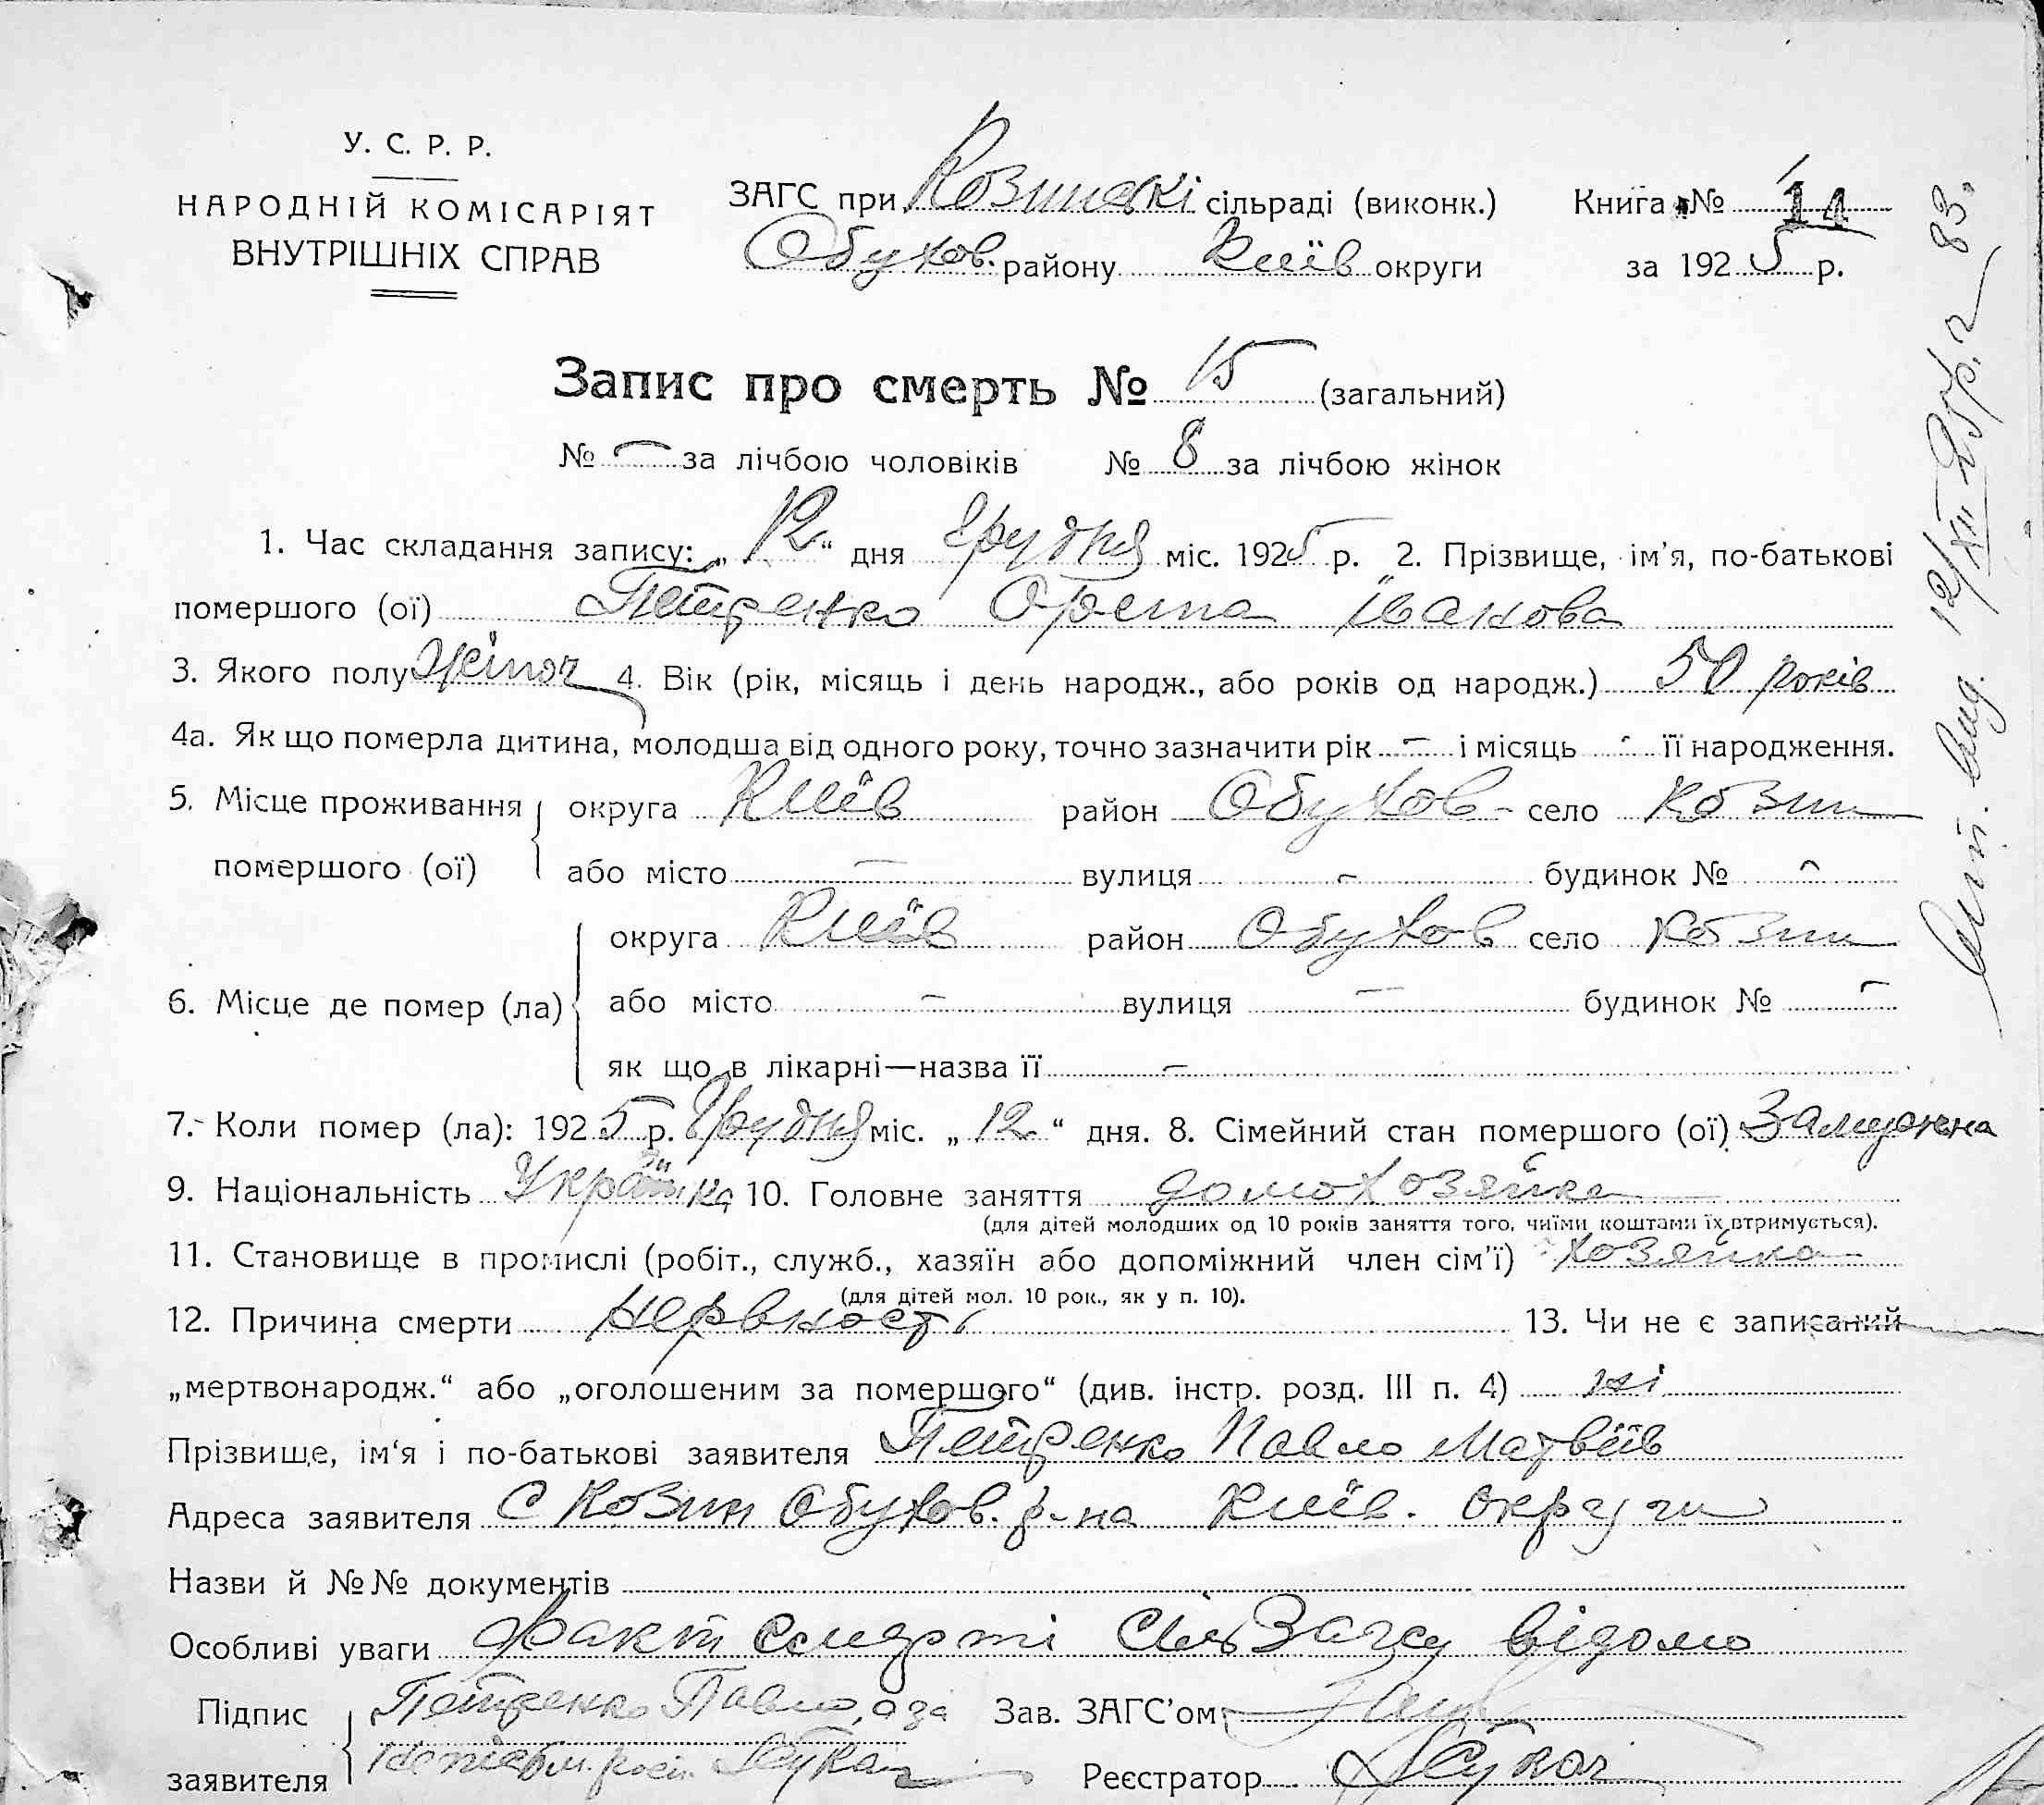 У. С. Р. Р.
НАРОДНІЙ КОМІСАРІЯТ
ВНУТРІШНІХ СПРАВ
ЗАГС при Козинські сільраді (виконк.)
Обухов. району Київ округи
Книга № 14
за 1925 р.
Запис про смерть № 15 (загальний)
№ — за лічбою чоловіків № 8 за лічбою жінок
1. Час складання запису: „12“ дня Грудня міс. 1925 р. 2. Прізвище, ім'я, по-батькові
помершого (ої) Петренко Орета Іванова
3. Якого полу жіноч 4. Вік (рік, місяць і день народж., або років од народж.) 50 років
4а. Як що померла дитина, молодша від одного року, точно зазначити рік — і місяць - її народження.
5. Місце проживання округа Київ район Обухов- село Козин
помершого (ої) або місто — вулиця — будинок № —
округа Київ район Обухов село Козин
6. Місце де помер (ла) або місто — вулиця — будинок № —
як що в лікарні—назва її —
7. Коли помер (ла): 1925 р. Грудня міс. „12“ дня. 8. Сімейний стан помершого (ої) Замужня
9. Національність Українка 10. Головне заняття домохозяйка
(для дітей молодших од 10 років заняття того, чиїми коштами їх втримується).
11. Становище в промислі (робіт., служб., хазяїн або допоміжний член сім'ї) хозяйка
(для дітей мол. 10 рок., як у п. 10).
12. Причина смерти нервность 13. Чи не є записаний
„мертвонародж.“ або „оголошеним за помершого“ (див. інстр. розд. III п. 4) ні
Прізвище, ім'я і по-батькові заявителя Петренко Павло Матвіїв
Адреса заявителя С Козин Обухов. р-на Київ. округи
Назви й №№ документів
Особливі уваги Факт смерті Сіль Загсу відомо
Підпис Петренко Павло, а за Зав. ЗАГС'ом
заявителя
Реєстратор
12/XII 25р. 83.